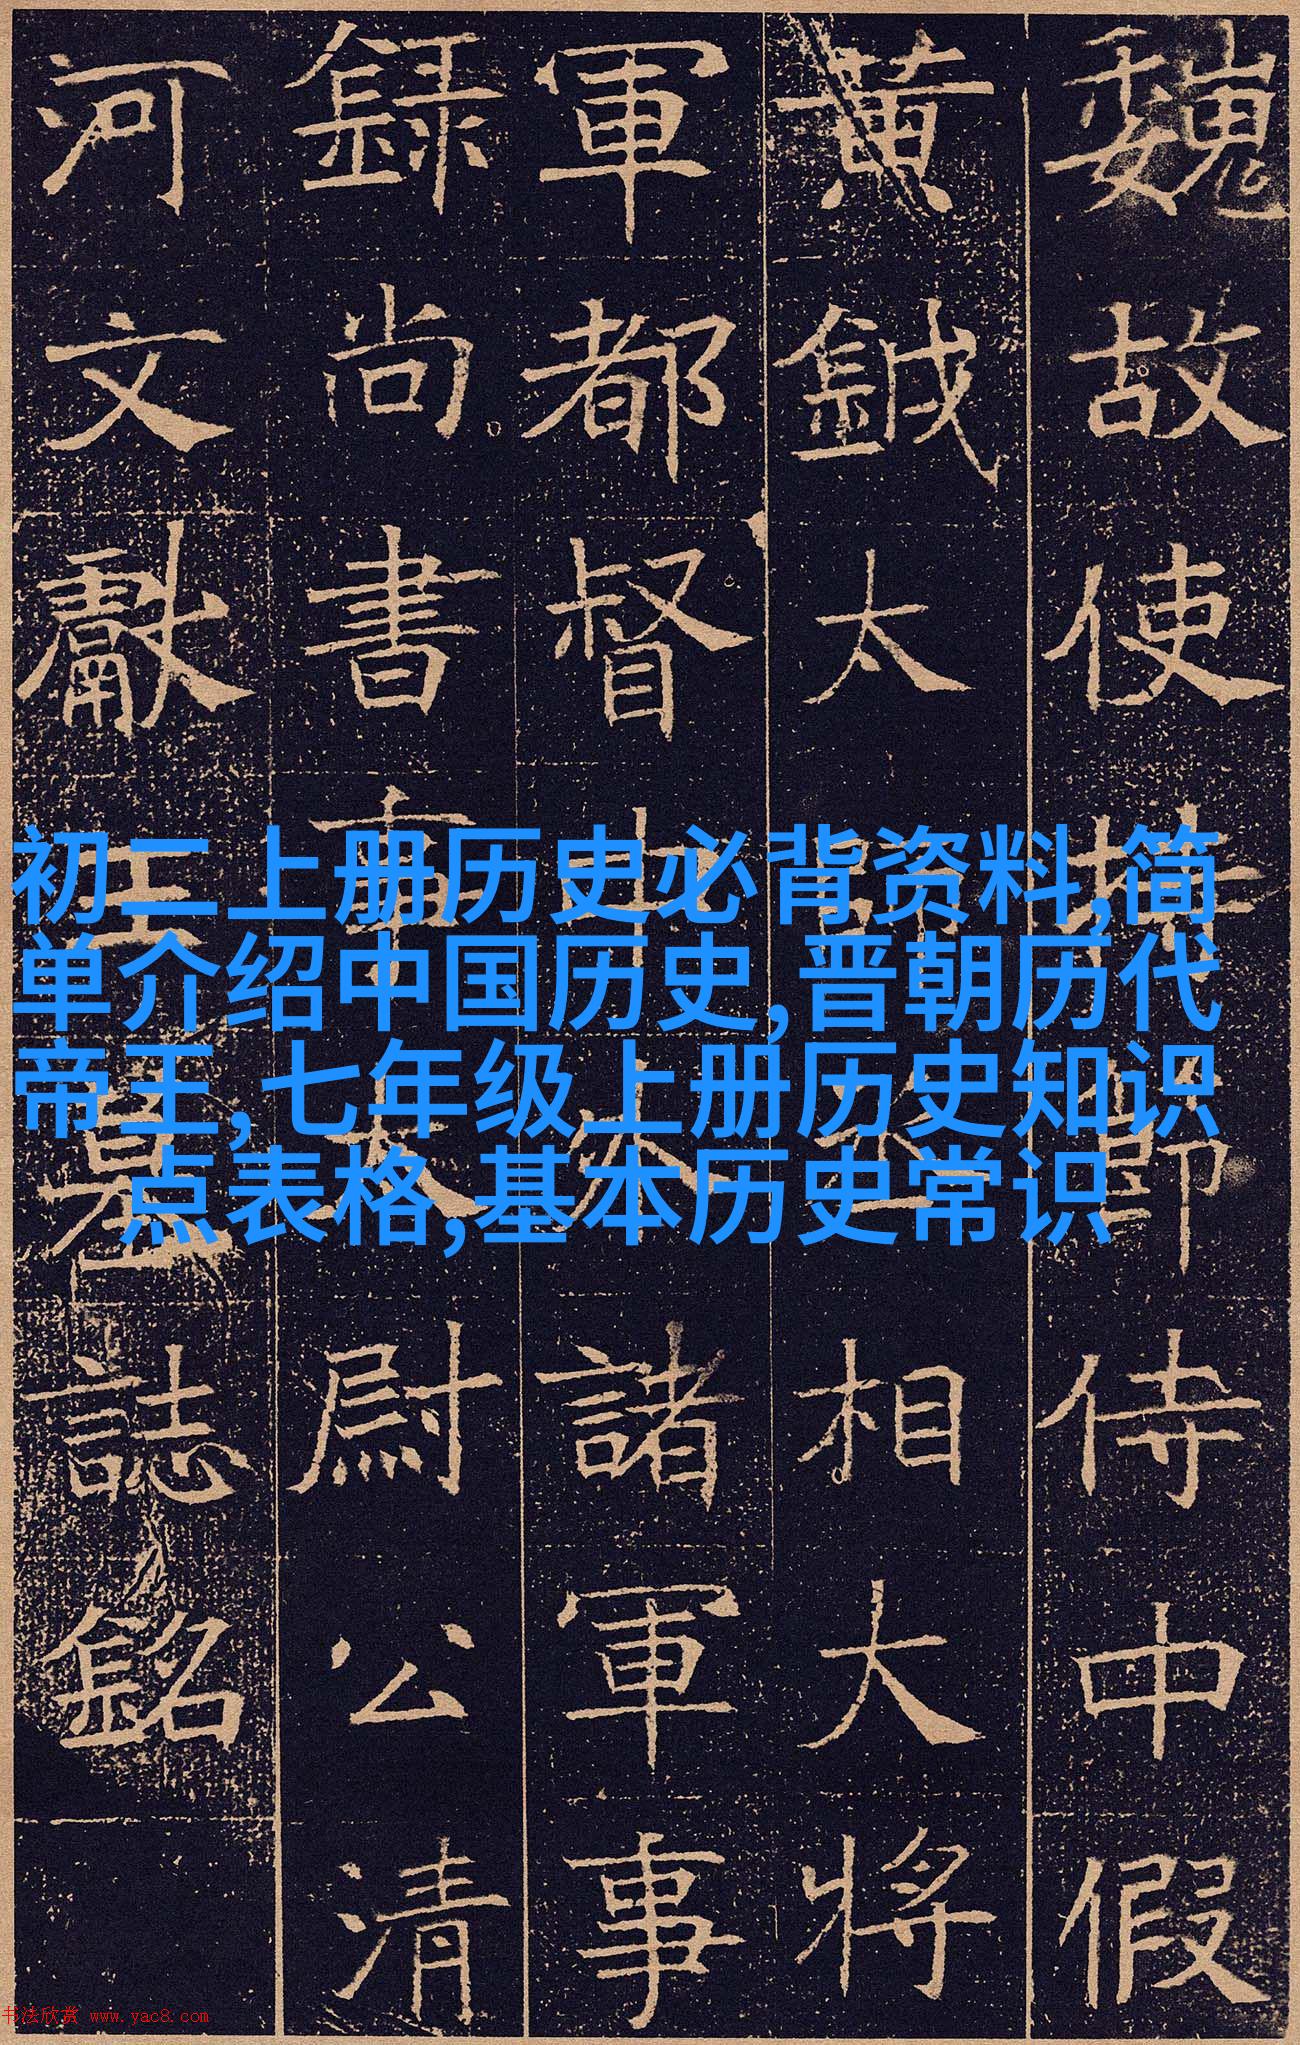 魏故使持節侍中假
黃鉞太師丞相大將
軍都督中外諸軍事
録尚書事太尉公清
河文獻王墓誌銘
初二上册历史必背资料,简
单介绍中国历史,晋朝历代
帝王,七年级上册历史知识
点表格,基本历史常识
书法欣赏 www.yac8.com